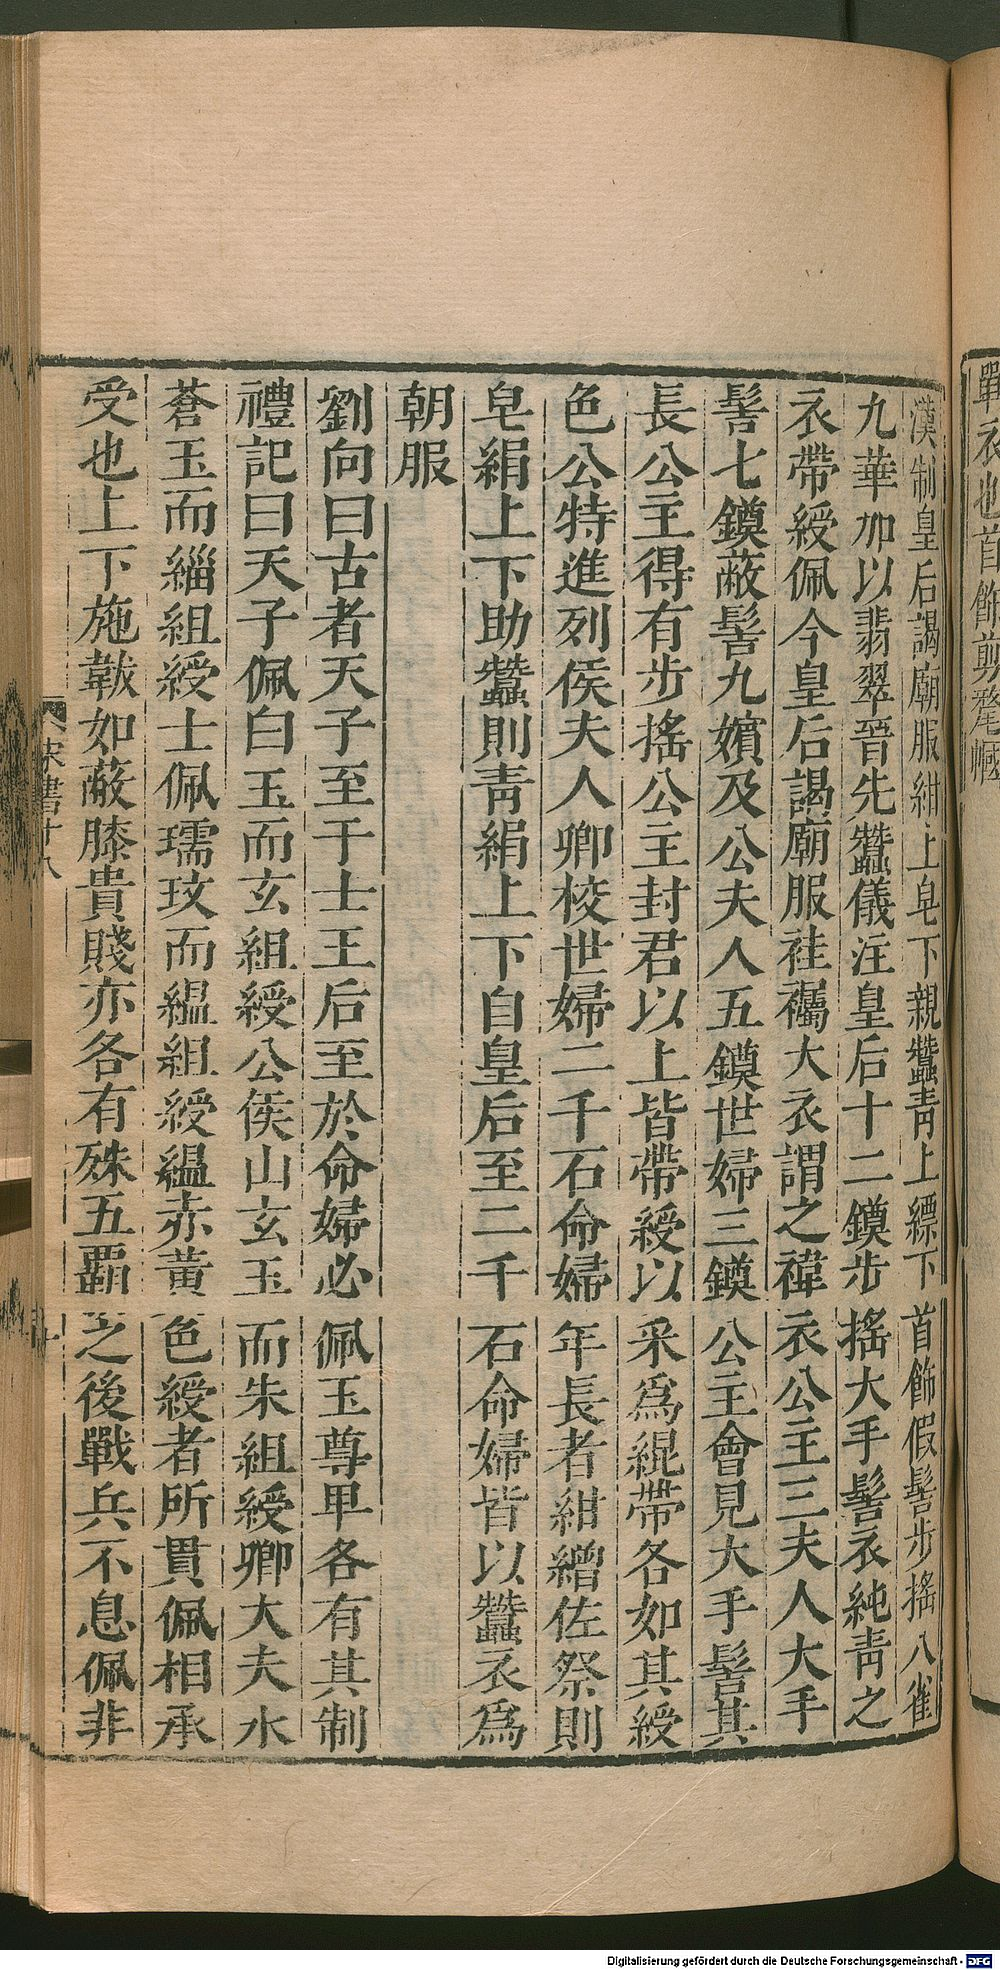 戰衣也首飾剪氂幗
漢制皇后謁廟服紺上皂下親蠶青上縹下首飾假髻步搖八雀
九華加以翡翠晉先蠶儀注皇后十二鏌步搖大手髻衣純青之
衣帶綬佩今皇后謁廟服袿襡大衣謂之褘衣公主三夫人大手
髻七鏌蔽髻九嬪及公夫人五鏌世婦三鏌公主會見大手髻其
長公主得有步搖公主封君以上皆帶綬以采為緄帶各如其綬
色公特進列侯夫人卿校世婦二千石命婦年長者紺繒佐祭則
皂絹上下助蠶則青絹上下自皇后至二千石命婦皆以蠶衣為
朝服
劉向曰古者天子至于士王后至於命婦必佩玉尊卑各有其制
禮記曰天子佩白玉而玄組綬公侯山玄玉而朱組綬卿大夫水
蒼玉而緇組綬士佩瓀玟而縕組綬縕赤黃色綬者所貫佩相承
受也上下施韍如蔽膝貴賤亦各有殊五霸之後戰兵不息佩非
宋書十八
十
Digitalisierung gefördert durch die Deutsche Forschungsgemeinschaft - DFG